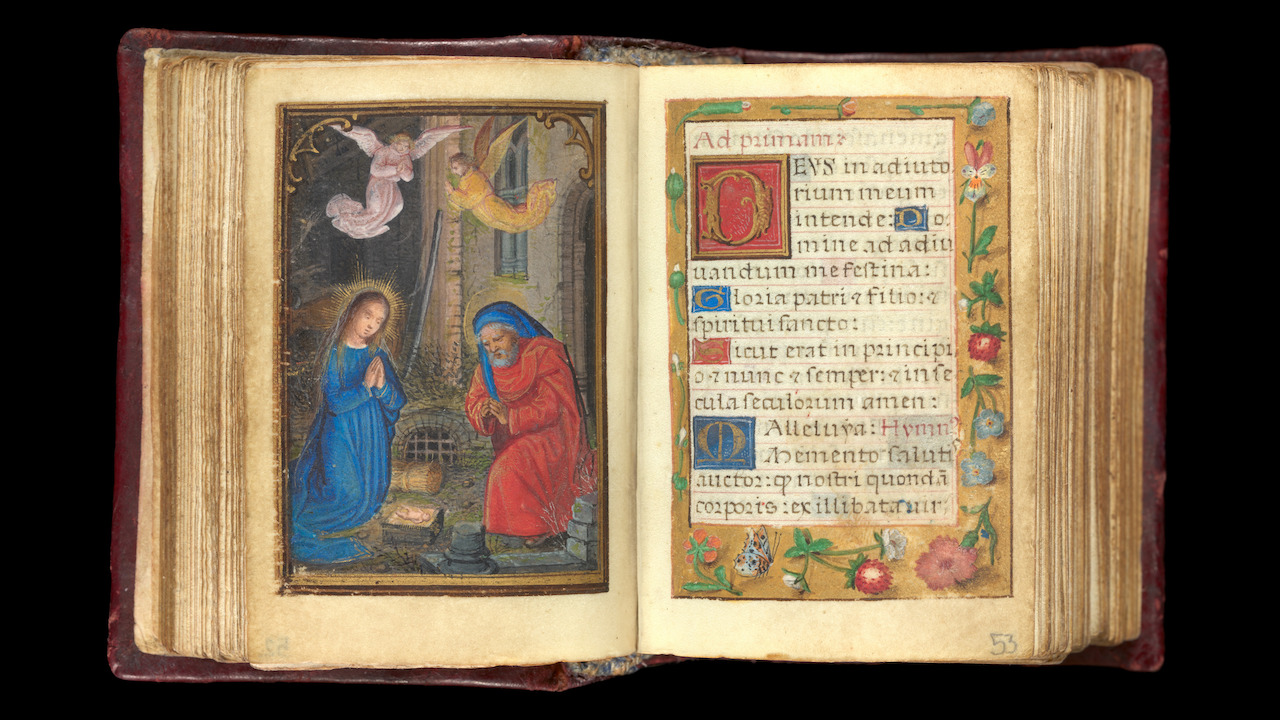 Ad primam:
DEVS in adiuto
rium meum
intende: Do
mine ad adiu
uandum me festina:
Gloria patri ⁊ filio: ⁊
spiritui sancto:
Sicut erat in principi
o ⁊ nunc ⁊ semper: ⁊ in se
cula seculorum amen:
Alleluya: Hymn
Memento salut
auctor: ꝙ nostri quondā
corporis: ex illibata uir:
53